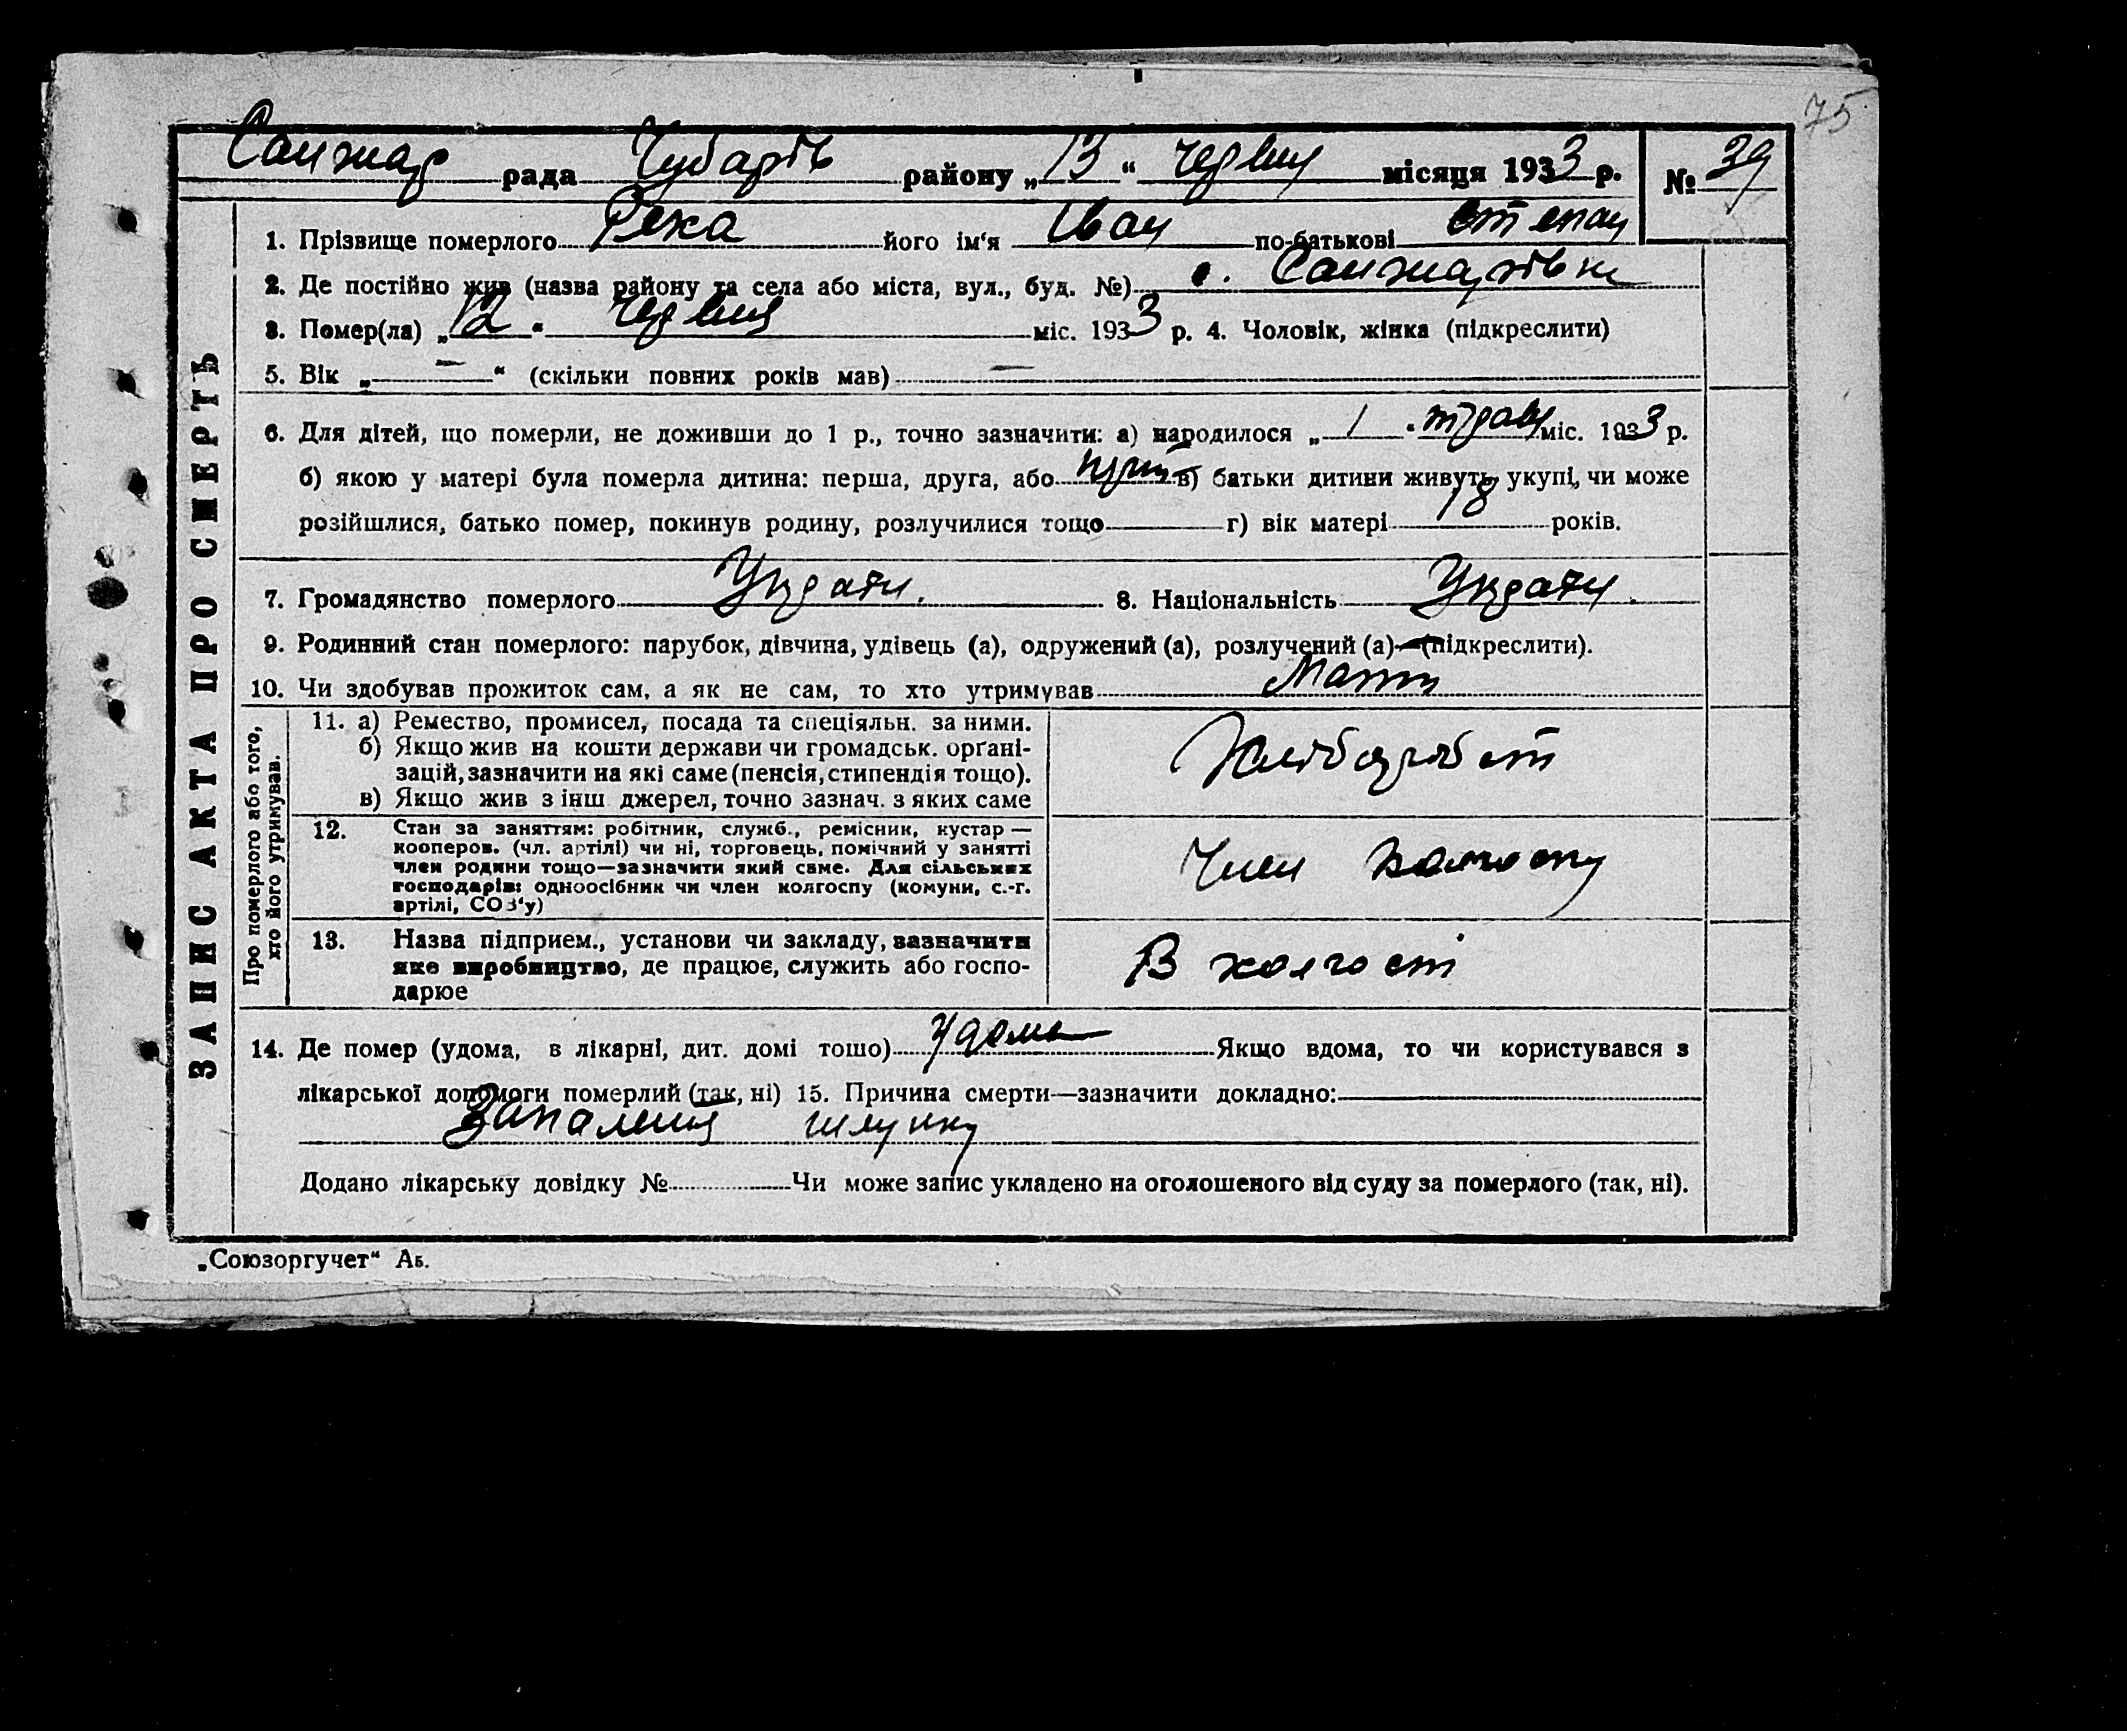 75
Санжар рада Чубарів району „13“ червня місяця 1933 р. № 39
1. Прізвище померлого Река його ім‘я Іван по-батькові степан
2. Де постійно жив (назва району та села або міста, вул., буд. №) с. Санжарівки
3. Помер(ла) „12“ червня міс. 1933 р. 4. Чоловік, жінка (підкреслити)
5. Вік „—“ (скільки повних років мав) —
6. Для дітей, що померли, не доживши до 1 р., точно зазначити: а) народилося „1“ травн міс. 1933 р.
б) якою у матері була померла дитина: перша, друга, або в) батьки дитини живуть укупі, чи може
розійшлися, батько помер, покинув родину, розлучилися тощо г) вік матері 18 років.
7. Громадянство померлого 8. Національність
9. Родинний стан померлого: парубок, дівчина, удівець (а), одружений (а), розлучений (а) (підкреслити).
10. Чи здобував прожиток сам, а як не сам, то хто утримував Мати
ЗАПИС АКТА ПРО СМЕРТЬ
Про померлого або того,
хто його утримував.
11. а) Ремество, промисел, посада та спеціяльн. за ними.
б) Якщо жив на кошти держави чи громадськ. орґані-
зацій, зазначити на які саме (пенсія, стипендія тощо).
в) Якщо жив з інш джерел, точно зазнач. з яких саме
Хлібороб
12. Стан за заняттям: робітник, служб., ремісник, кустар —
кооперов. (чл. артілі) чи ні, торговець, помічний у занятті
член родини тощо—зазначити який саме. Для сільських
господарів: одноосібник чи член колгоспу (комуни, с.-г.
артілі, СОЗ‘у)
Член колгоспу
13. Назва підприєм., установи чи закладу, зазначити
яке виробництво, де працює, служить або госпо-
дарює
В колгоспі
14. Де помер (удома, в лікарні, дит. домі тощо) удома Якщо вдома, то чи користувався з
лікарської допомоги померлий (так, ні) 15. Причина смерти—зазначити докладно:
Запалення шлунку
Додано лікарську довідку № Чи може запис укладено на оголошеного від суду за померлого (так, ні).
„Союзоргучет“ Аб.